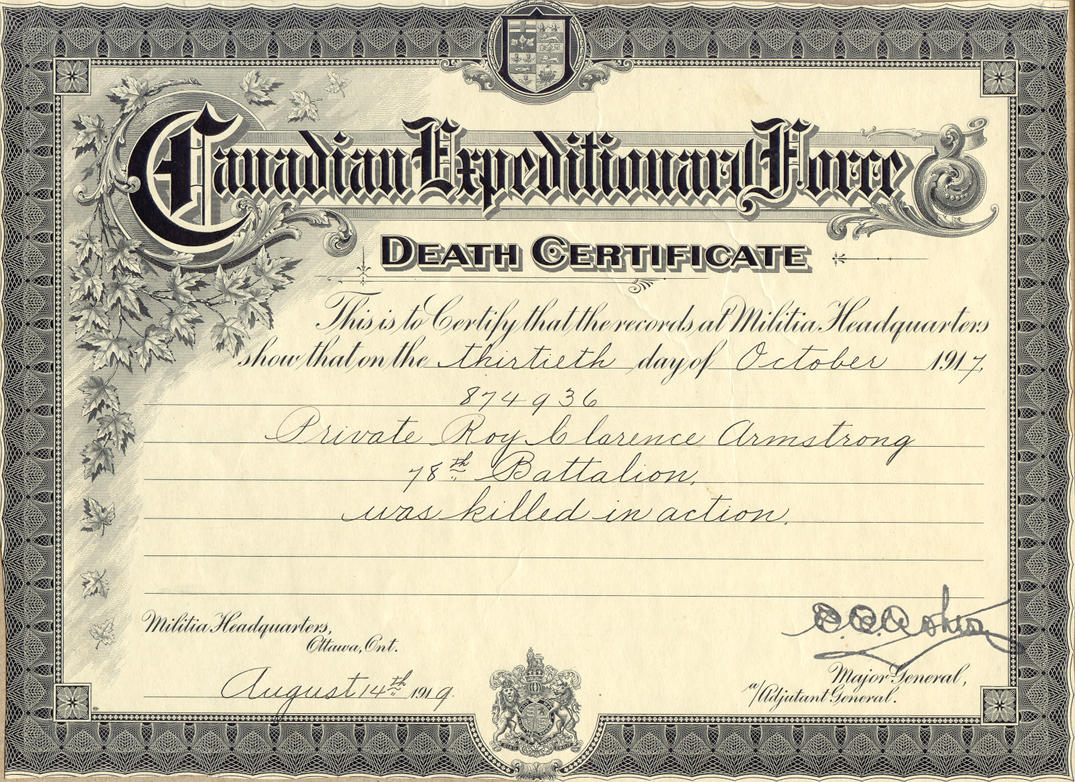 Canadian Expeditionary Force
DEATH CERTIFICATE
This is to Certify that the records at Militia Headquarters
show that on the thirtieth day of October 1917,
874936
Private Roy Clarence Armstrong
78th Battalion,
was killed in action.
Militia Headquarters,
Ottawa, Ont.
August 14th 1919.
Major General,
a/Adjutant General.